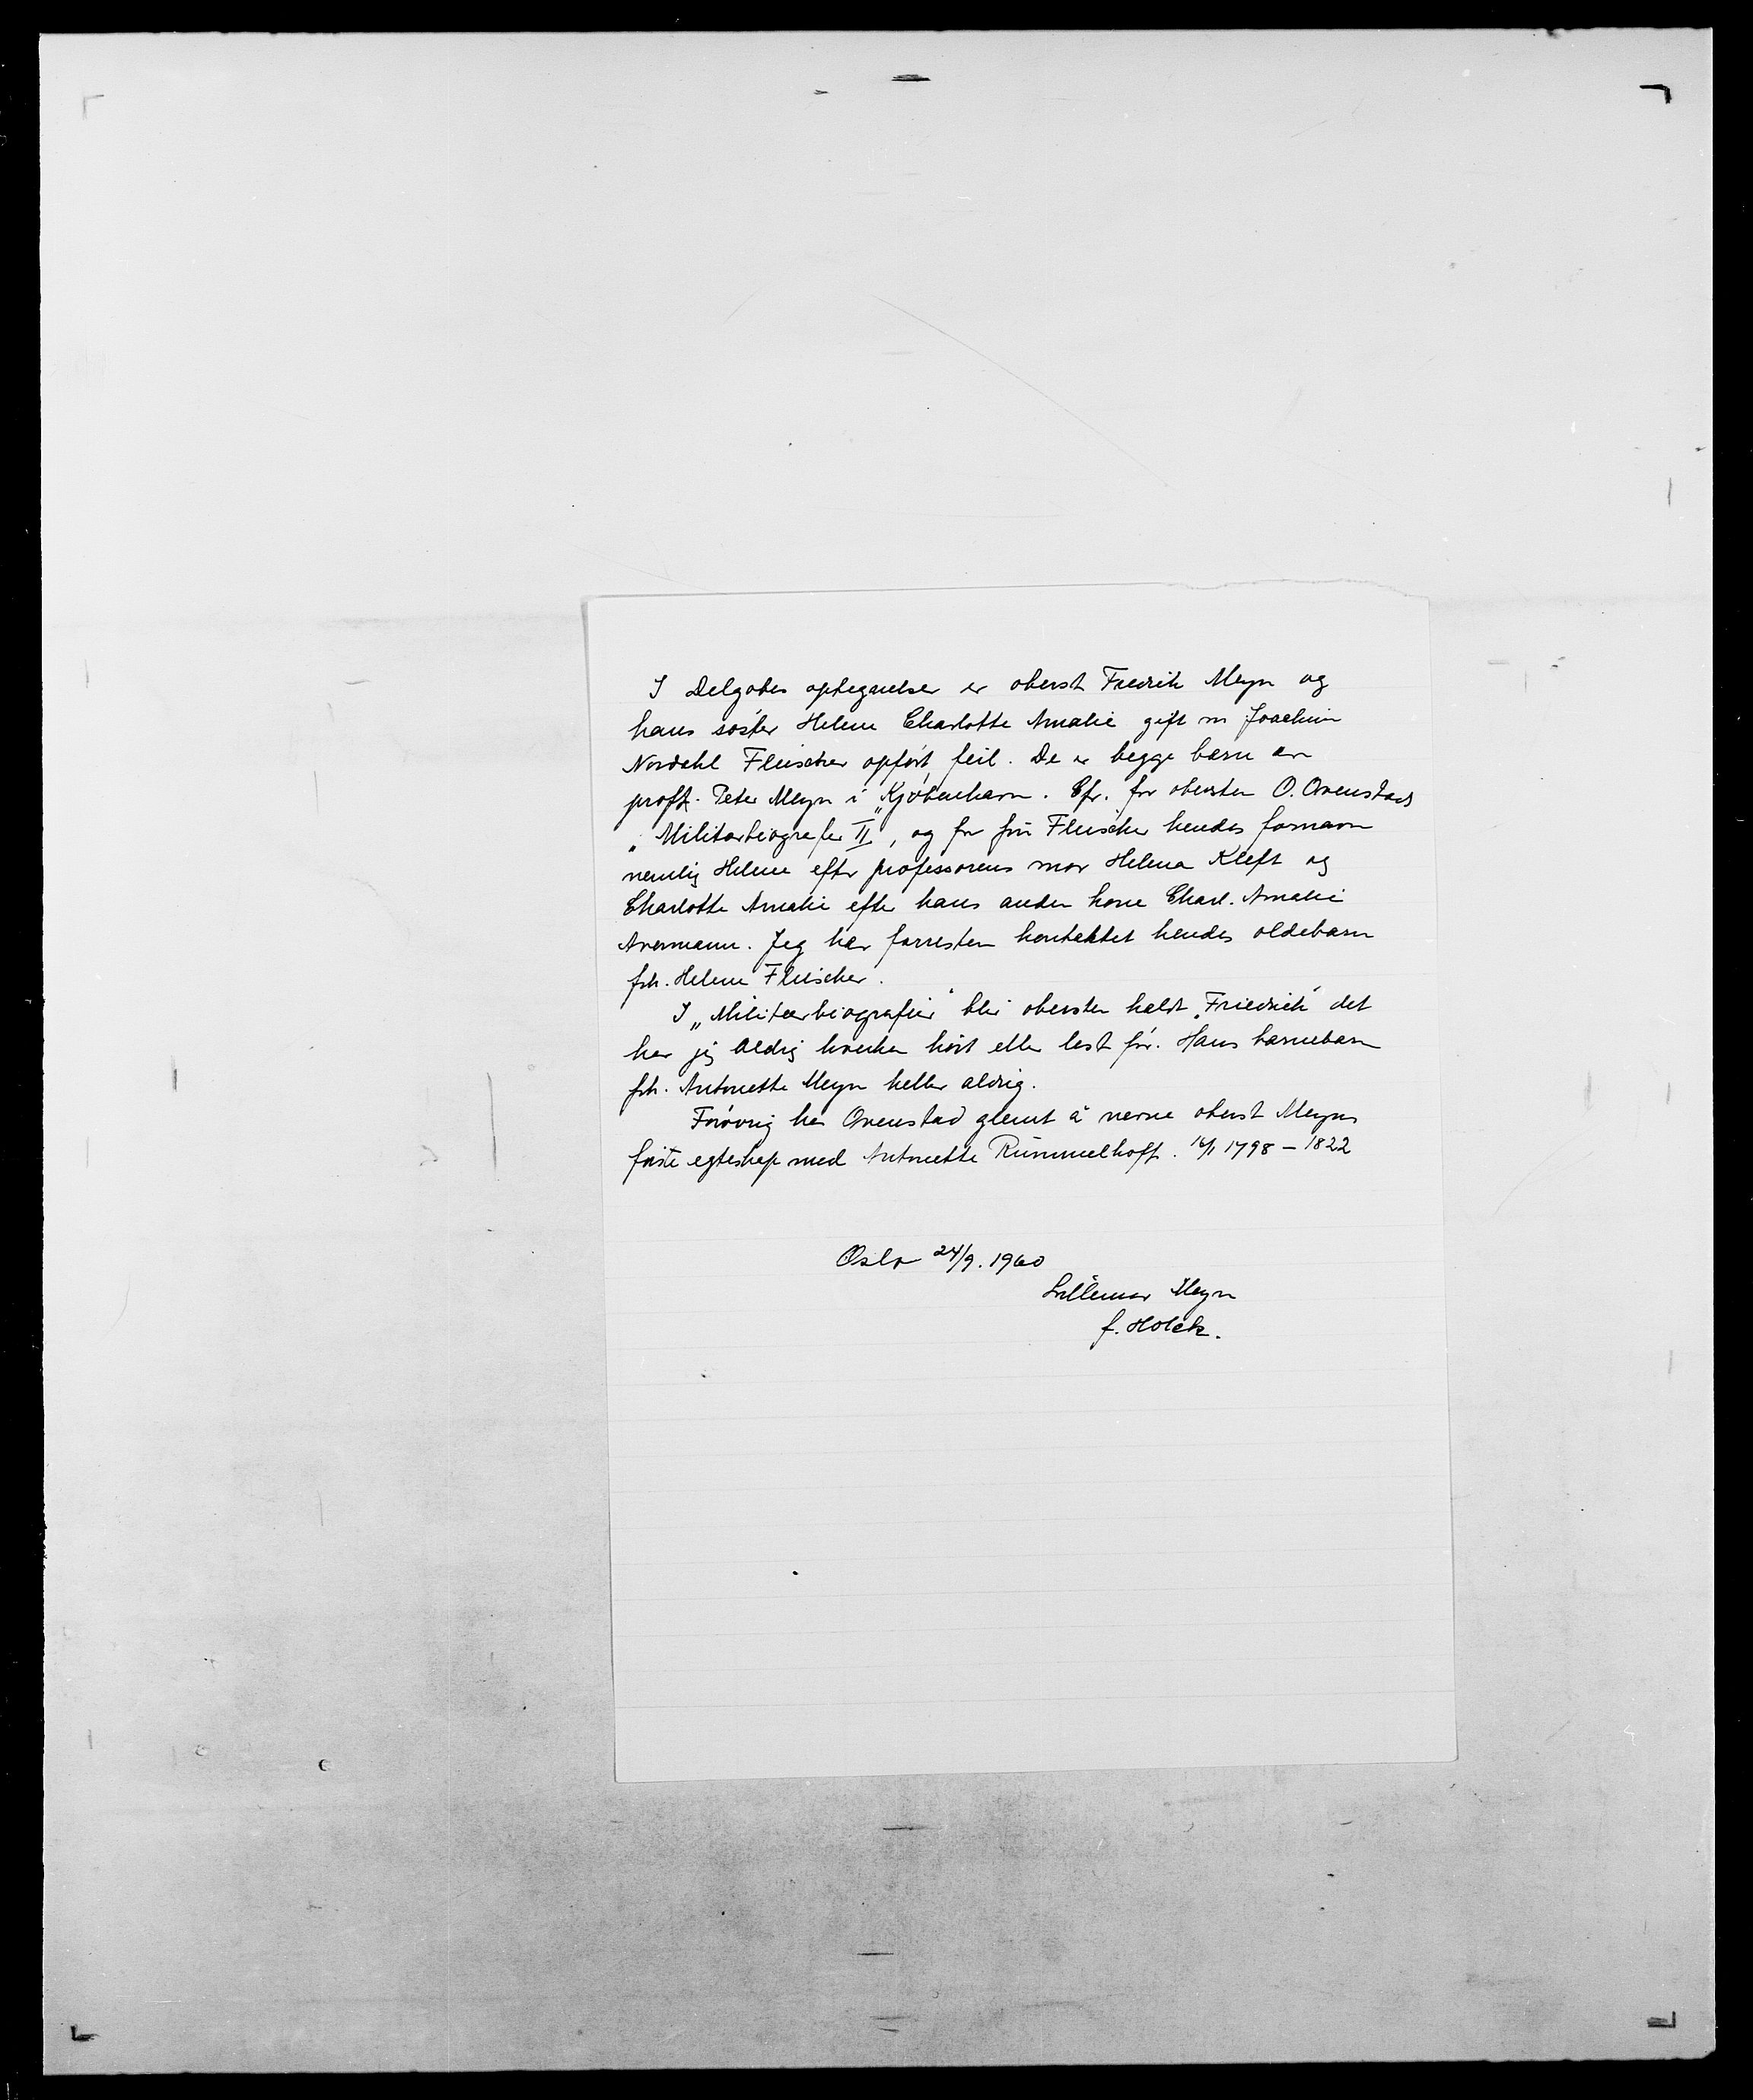 I Delgobes optegnelser er oberst Fredrik Meyn og
hans søster Helene Charlotte Amalie gift m Joachim
Nordahl Fleischer opført feil. De er begge barn av
proff. Peter Meyn i Kjøbenhavn. Cfr. for obersten O. Ovenstads
„Militærbiografier II", og for fru Fleischer hendes fornavn
nemlig Helene efter professorens mor Helena Kleft og
Charlotte Amalie efter hans anden kone Charl. Amalie
Avemann. Jeg har forresten kontaktet hendes oldebarn
frk. Helene Fleischer.
I „Militærbiografier" blir obersten kaldt „Friedrich" det
har jeg aldrig hverken hørt eller lest før. Hans barnebarn
frk. Antonette Meyn heller aldrig.
Forøvrig har Ovenstad glemt å nevne oberst Meyns
første egteskap med Antonette Rummelhoff. 16/1 1798 – 1822
Oslo 24/9. 1960
Lillemor Meyn
f. Holck.